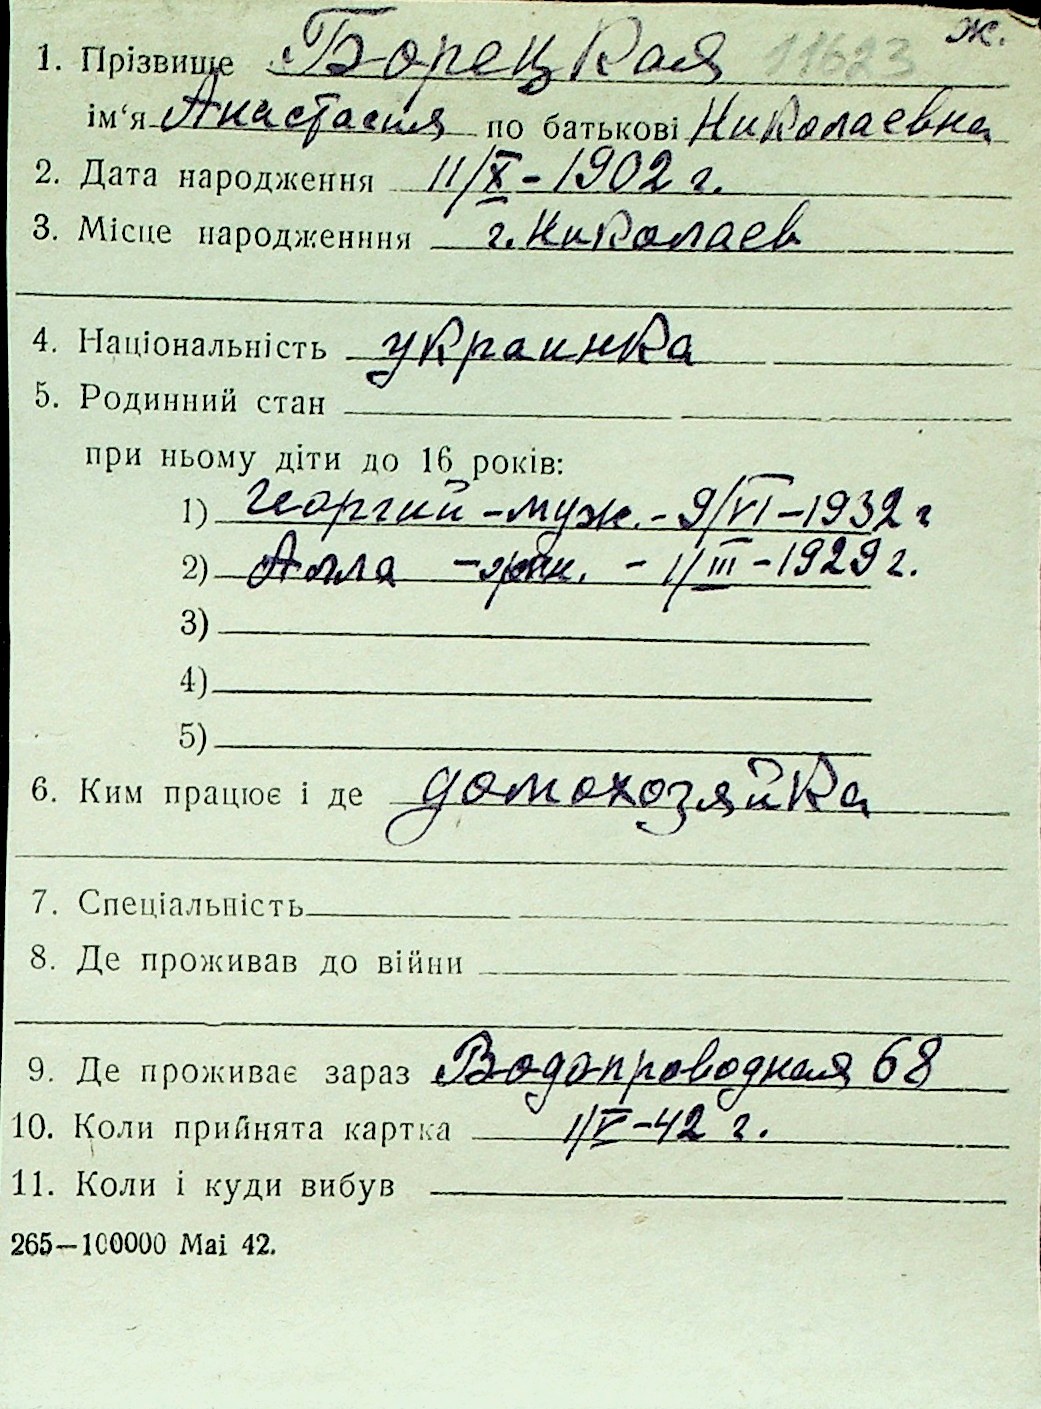 ж.
1. Прізвище Борецкая 11623
ім‘я Анастасия по батькові Николаевна
2. Дата народження 11/X - 1902 г.
3. Місце народженння г. Николаев
4. Національність украинка
5. Родинний стан
при ньому діти до 16 років:
1) Георгий - муж. - 9/VI - 1932 г
2) Алла - - 1/III - 1929 г.
3)
4)
5)
6. Ким працює і де домохозяйка
7. Спеціальність
8. Де проживав до війни
9. Де проживає зараз Водопроводная 68
10. Коли прийнята картка 1/V - 42 г.
11. Коли і куди вибув
265—100000 Mai 42.